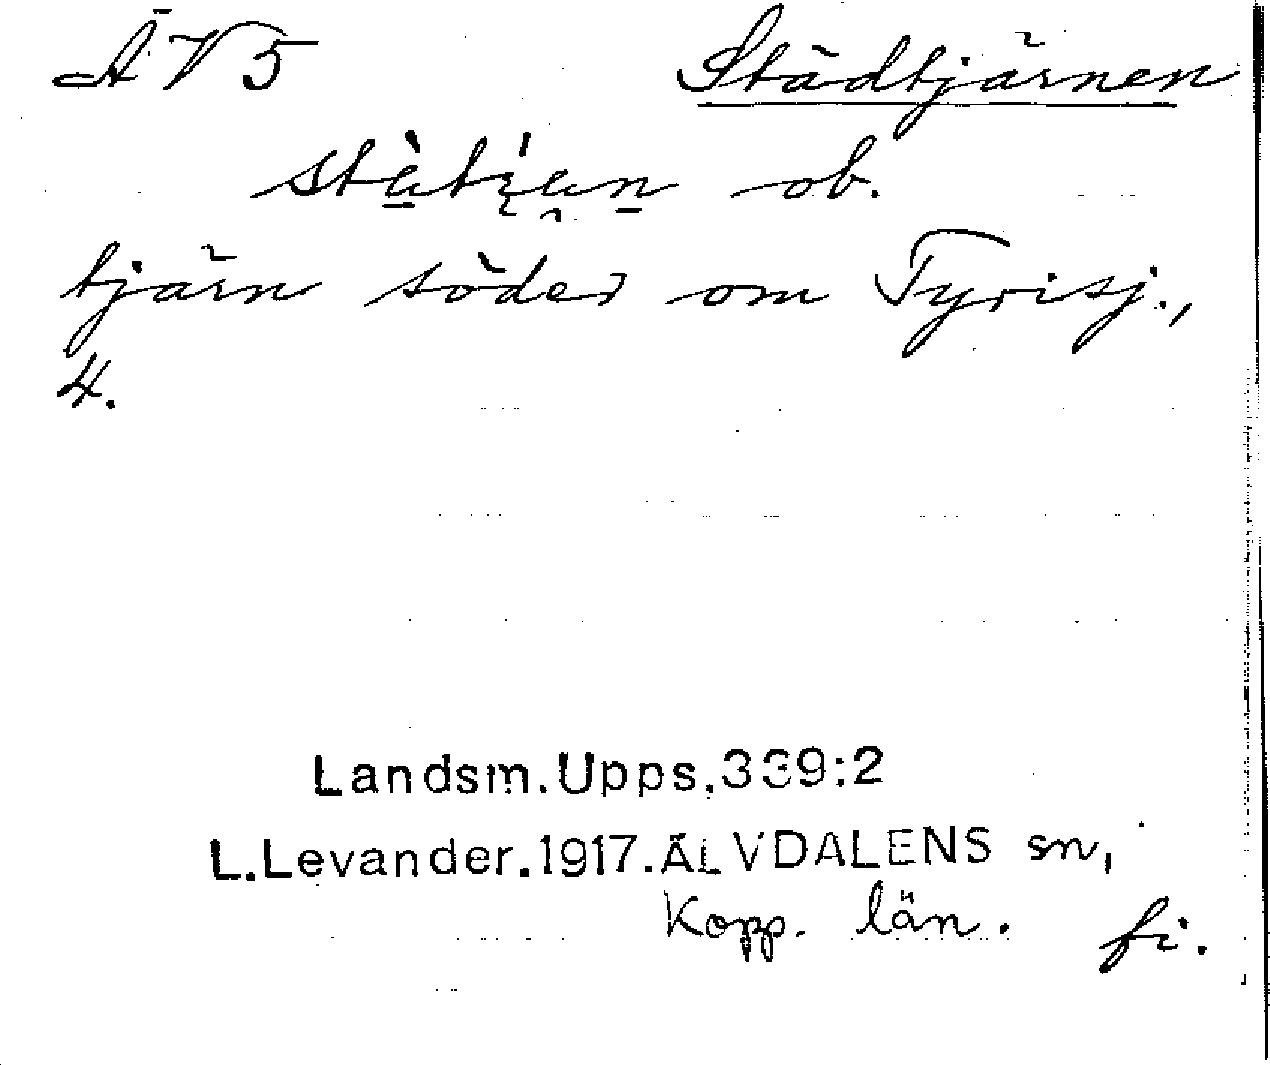 ÄV5 Städtjärnen
ob.
tjärn söder om Tyrisj.,
4.
Landsm. Upps. 339:2
L.Levander.1917. ÄLVDALENS sn,
Kopp. län. fi.